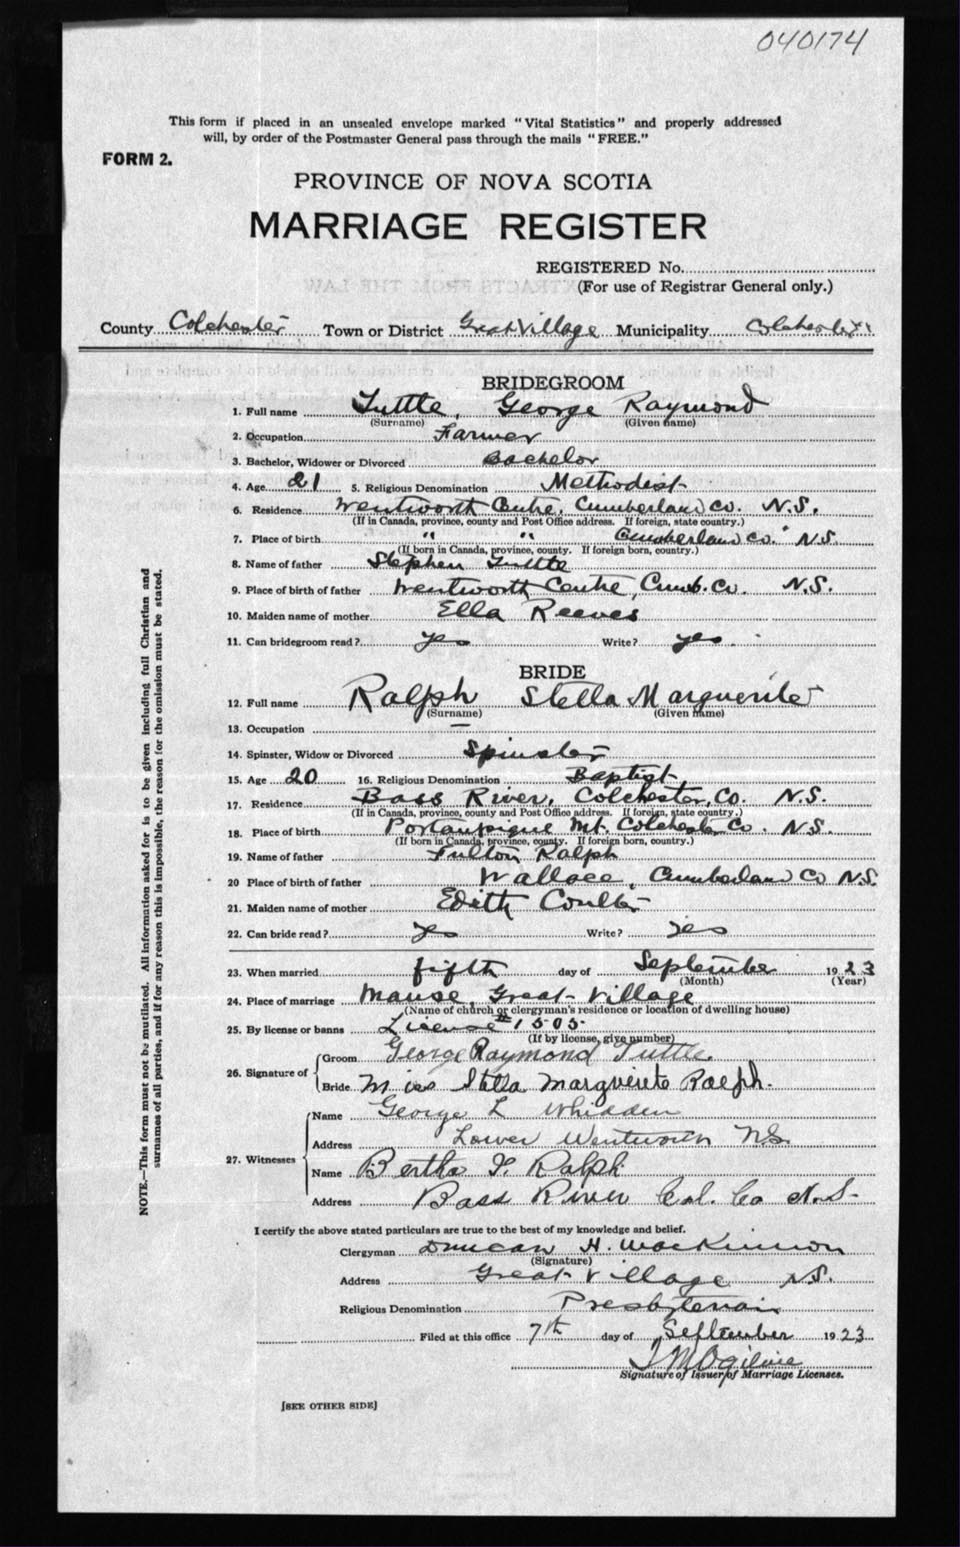 040174
This form if placed in an unsealed envelope marked "Vital Statistics" and properly addressed
will, by order of the Postmaster General pass through the mails "FREE."
FORM 2.
PROVINCE OF NOVA SCOTIA
MARRIAGE REGISTER
REGISTERED No.
(For use of Registrar General only.)
County Colchester Town or District Great Village Municipality Colchester
BRIDEGROOM
1. Full name Tuttle, George Raymond
(Surname) (Given name)
2. Occupation Farmer
3. Bachelor, Widower or Divorced Bachelor
4. Age 21 5. Religious Denomination Methodist
6. Residence Wentworth Centre, Cumberland Co. N.S.
(If in Canada, province, county and Post Office address. If foreign, state country.)
7. Place of birth " " Cumberland Co. N.S.
(If born in Canada, province, county. If foreign born, country.)
8. Name of father Stephen Tuttle
9. Place of birth of father Wentworth Centre, Cumb. Co. N.S.
10. Maiden name of mother Ella Reeves
11. Can bridegroom read? yes Write? yes
BRIDE
12. Full name Ralph Stella Marguerite
(Surname) (Given name)
13. Occupation —
14. Spinster, Widow or Divorced Spinster
15. Age 20 16. Religious Denomination Baptist
17. Residence Bass River, Colchester, Co. N.S.
(If in Canada, province, county and Post Office address. If foreign, state country.)
18. Place of birth Portaupique Mt. Colchester Co. N.S.
(If born in Canada, province, county. If foreign born, country.)
19. Name of father Fulton Ralph
20 Place of birth of father Wallace, Cumberland Co N.S.
21. Maiden name of mother Edith Coulter
22. Can bride read? yes Write? yes
23. When married fifth day of September 1923
(Month) (Year)
24. Place of marriage Manse, Great Village
(Name of church or clergyman's residence or location of dwelling house)
25. By license or banns License #1505
(If by license, give number)
26. Signature of Groom George Raymond Tuttle
Bride Miss Stella Marguerite Ralph.
27. Witnesses Name George L Whidden
Address Lower Wentworth N.S.
Name Bertha F. Ralph
Address Bass River Col. Co N.S.
I certify the above stated particulars are true to the best of my knowledge and belief.
Clergyman Duncan H. MacKinnon
(Signature)
Address Great Village N.S.
Religious Denomination Presbyterian
Filed at this office 7th day of September 1923
Ogilvie
Signature of Issuer of Marriage Licenses.
[SEE OTHER SIDE]
NOTE.—This form must not be mutilated. All information asked for is to be given including full Christian and
surnames of all parties, and if for any reason this is impossible, the reason for the omission must be stated.